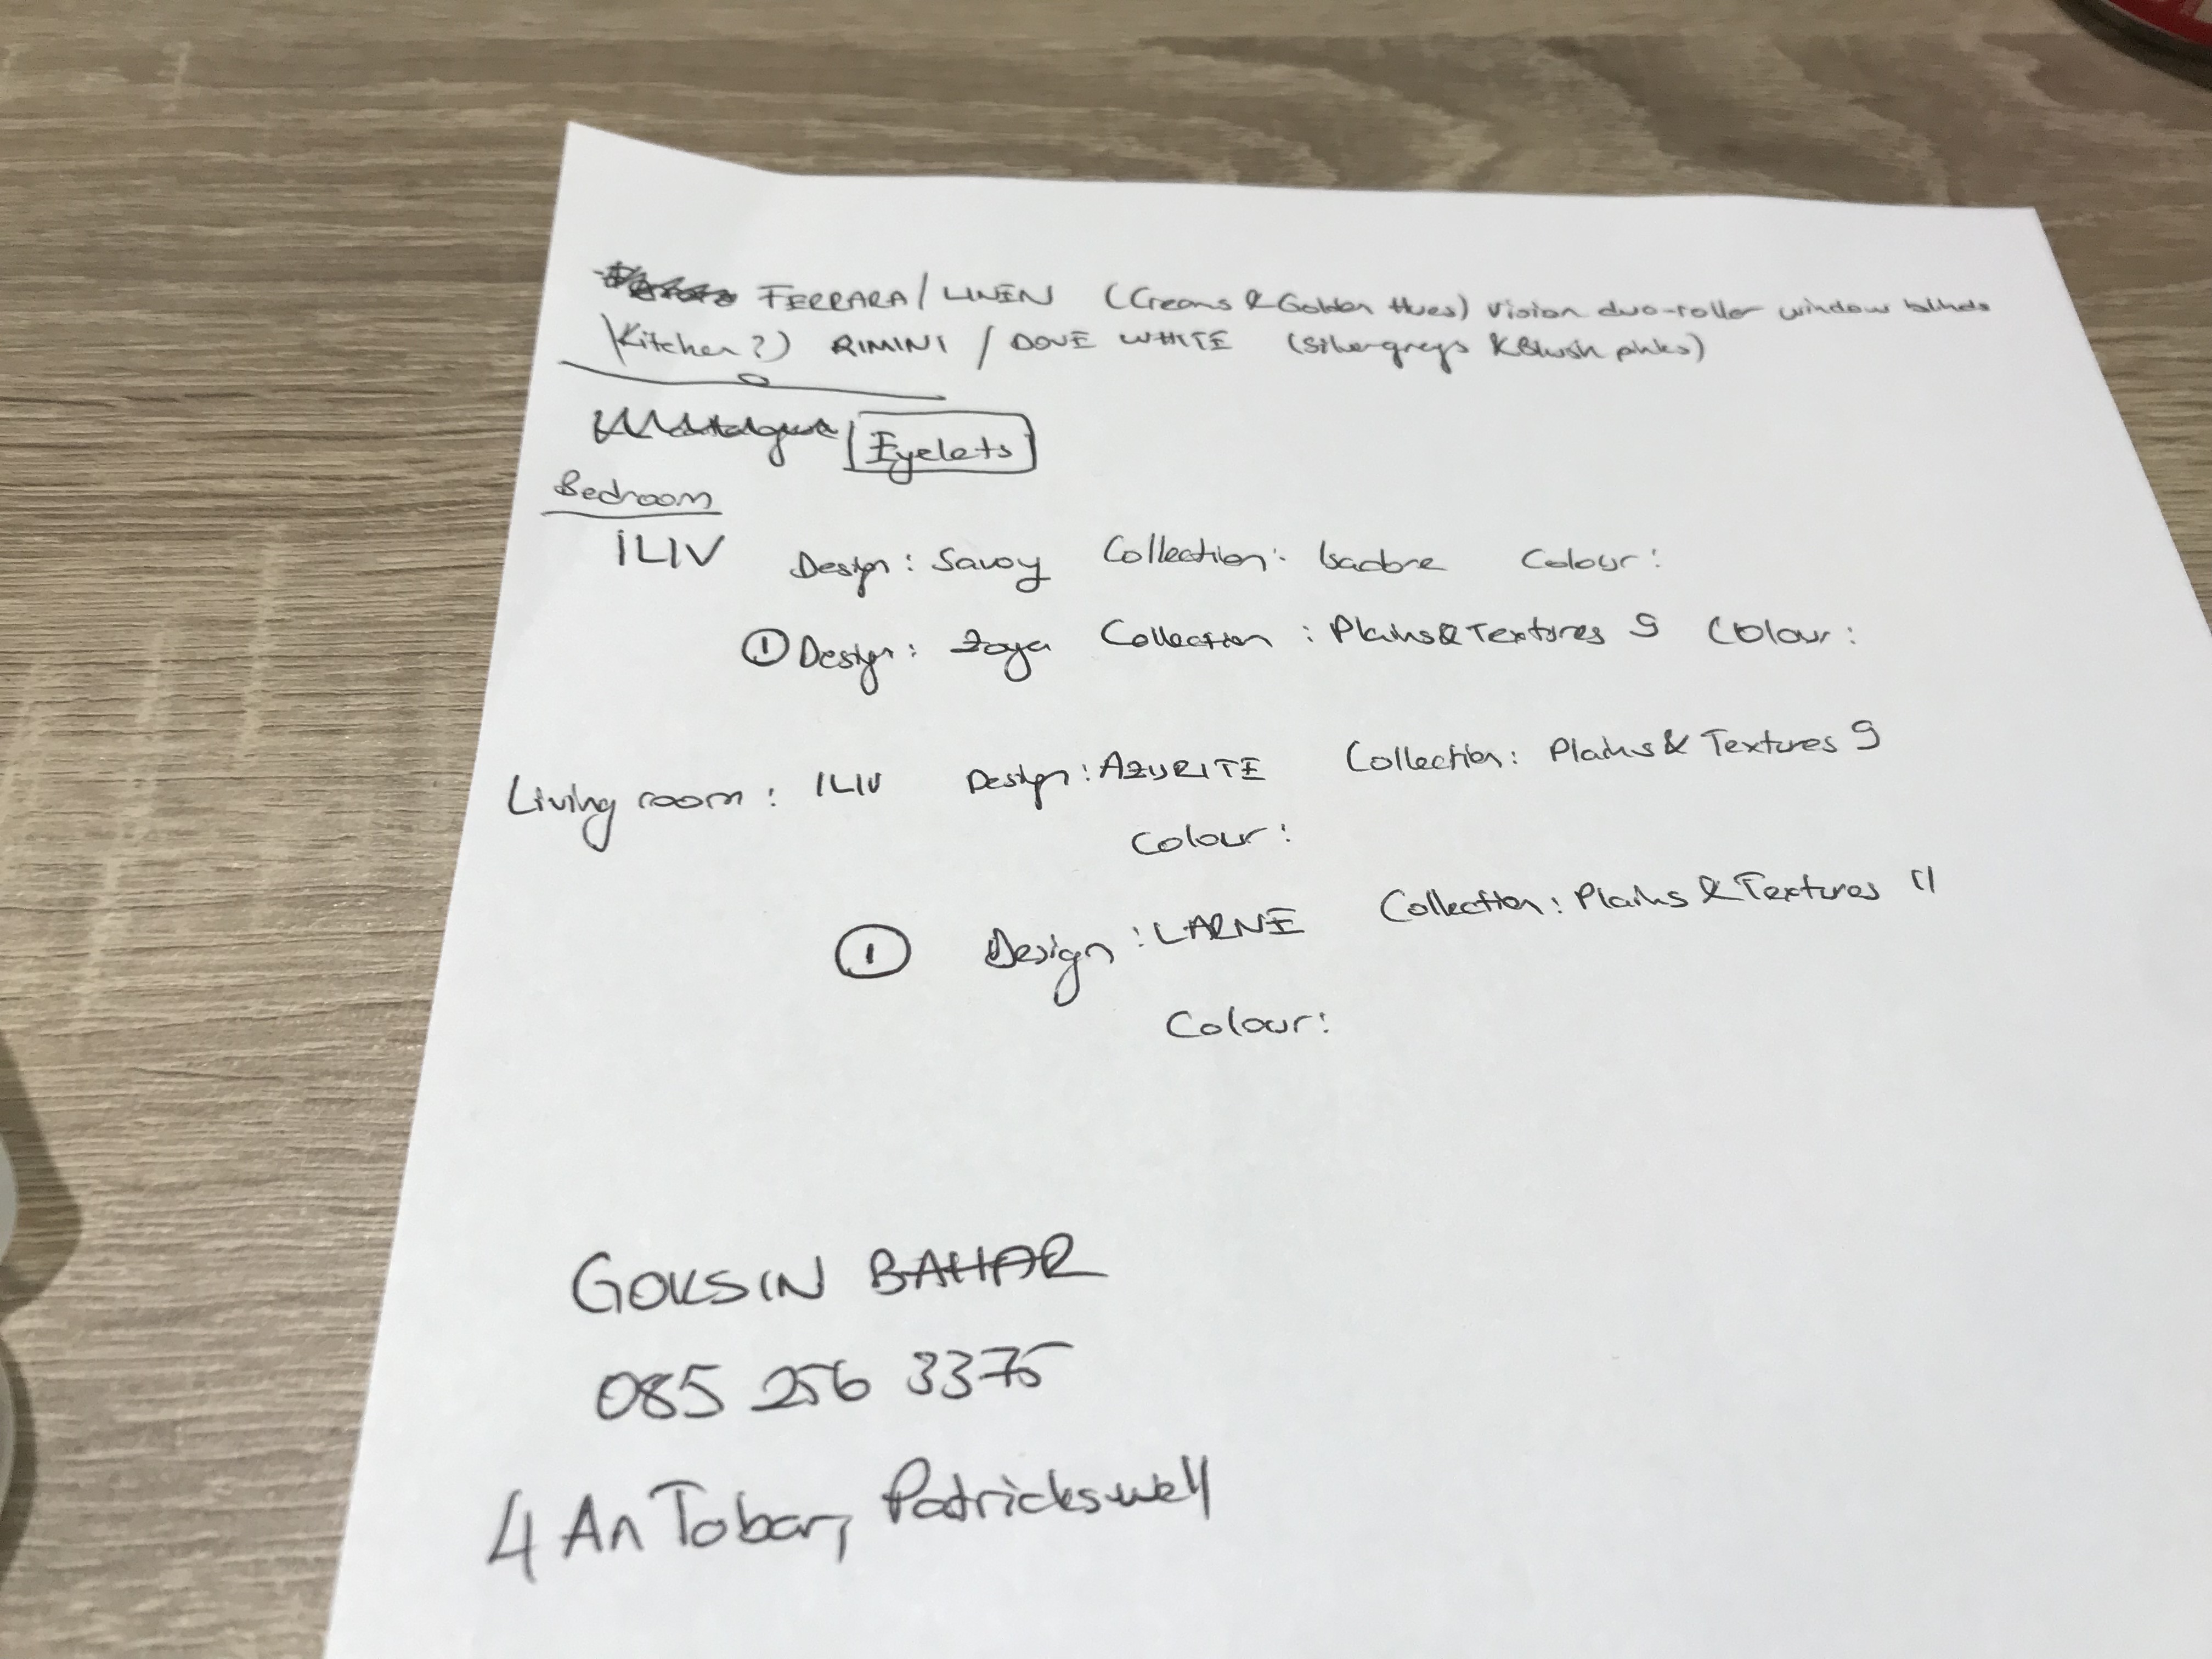 FERRARA / LINEN (Creams & Golden Hues) Vision duo-roller window blinds
(Kitchen?) RIMINI / DOVE WHITE (Silvergreys & Blush pinks)
Eyelets
Bedroom
ILIV Design: Savoy Collection: Isadore Colour:
① Design: Zoya Collection: Plains & Textures 9 Colour:
Living room: ILIV Design: AZURITE Collection: Plains & Textures 9
Colour:
① Design: LARNE Collection: Plains & Textures 11
Colour:
GOKSIN BAHAR
085 256 3375
4 An Tobar, Patrickswell